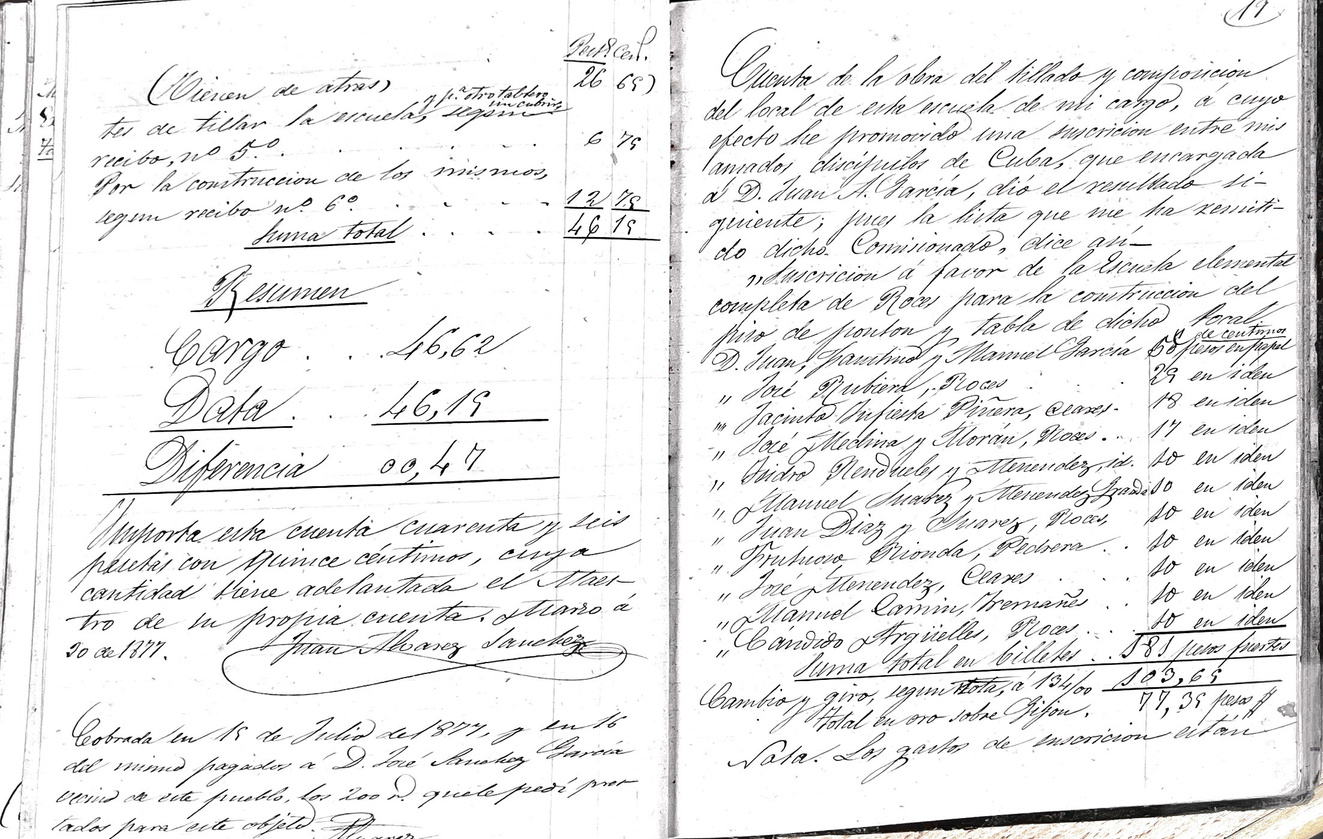 Pest⁸ Cent.
(Vienen de atras) 26 65)
y pª otro tablero
sin cubrir
tes de tillar la escuela, segun
recibo, nº 5º . . . . . . 6 75
Por la construccion de los mismos,
segun recibo nº 6º . . . . 12 75
Suma total . . . . 46 15
Resumen
Cargo . . . 46,62
Data . . 46,15
Diferencia 00,47
Importa esta cuenta cuarenta y seis
pesetas con quince céntimos, cuya
cantidad tiene adelantada el Maes-
tro de su propia cuenta. Marzo á
30 de 1877.
Juan Alvarez Sanchez
Cobrada en 15 de Julio de 1877, y en 16
del mismo pagados á D. José Sanchez García
vecino de este pueblo, los 200 r. que le pedí pres
tados para este objeto.
Alvarez
19
Cuenta de la obra del tillado y composicion
del local de esta escuela de mi cargo, á cuyo
efecto he promovido una suscricion entre mis
amados discípulos de Cuba, que encargada
á D. Juan A. García, dió el resultado si-
guiente; pues la lista que me ha remiti-
do dicho Comisionado, dice así—
"Suscricion á favor de la Escuela elemental
completa de Roces para la construccion del
piso de ponton y tabla de dicho local.
de centimos
D. Juan, Faustino y Manuel García 50 pesos en papel
" José Rubiera, Roces 25 en iden
" Jacinto Infiesta Piñera, Ceares. 18 en iden
" José Medina y Morán, Roces . . 17 en iden
" Isidro Rendueles y Menendez, id. 10 en iden
" Manuel Suarez y Menendez, Granda 10 en iden
" Juan Diaz y Suarez, Roces, 10 en iden
" Frutuoso Rionda, Pedrera . . 10 en iden
" José Menendez, Ceares . . . . 10 en iden
" Manuel Camin, Tremañes . . 10 en iden
" Candido Argüelles, Roces . . . 10 en iden
Suma total en billetes . . 181 pesos fuertes
Cambio y giro, segun nota, á 134/00 103,65
Total en oro sobre Gijon. 77,35 pesos ff
Nota. Los gastos de suscricion están